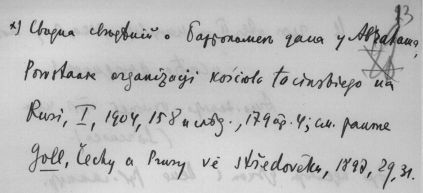 13
x) Сводка сведений о Бартоломее дана у Abrahama,
Powstanie organizacji kościoła łacinskiego na
Rusi, I, 1904, 158 и след., 179 пр. 4; см. ранее
Goll, Čechy a Prusy ve středověku, 1897, 29, 31.